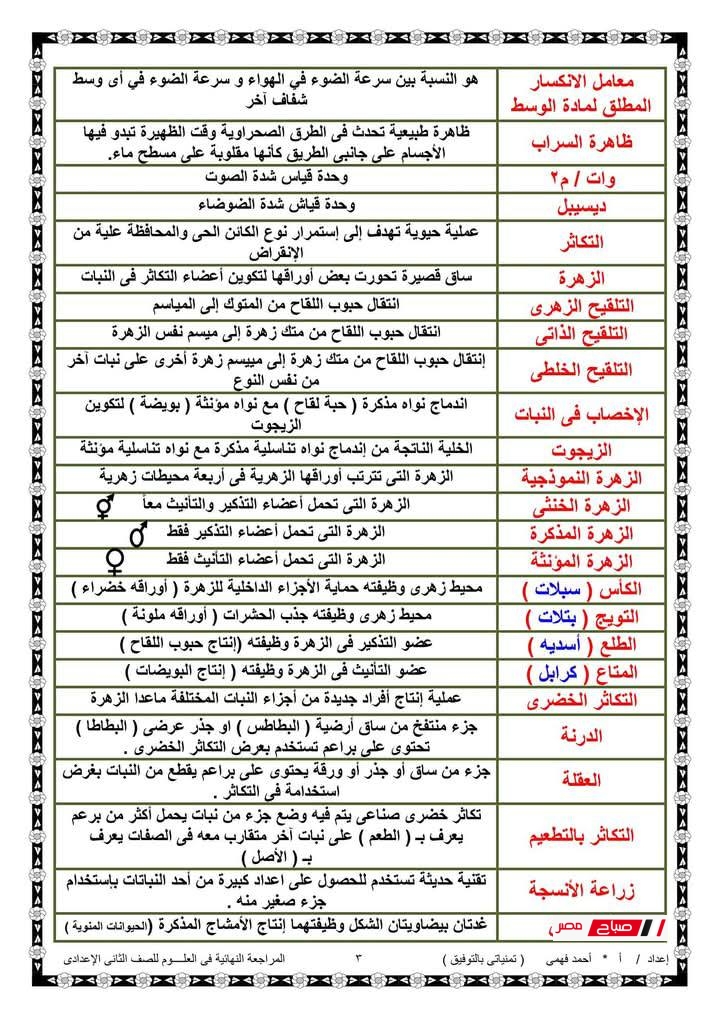 معامل الانكسار
المطلق لمادة الوسط
هو النسبة بين سرعة الضوء في الهواء و سرعة الضوء في أى وسط
شفاف آخر
ظاهرة السراب
ظاهرة طبيعية تحدث فى الطرق الصحراوية وقت الظهيرة تبدو فيها
الأجسام على جانبى الطريق كأنها مقلوبة على مسطح ماء.
وات / م٢
وحدة قياس شدة الصوت
ديسيبل
وحدة قياش شدة الضوضاء
التكاثر
عملية حيوية تهدف إلى إستمرار نوع الكائن الحى والمحافظة علية من
الإنقراض
الزهرة
ساق قصيرة تحورت بعض أوراقها لتكوين أعضاء التكاثر فى النبات
التلقيح الزهرى
انتقال حبوب اللقاح من المتوك إلى المياسم
التلقيح الذاتى
انتقال حبوب اللقاح من متك زهرة إلى ميسم نفس الزهرة
التلقيح الخلطى
إنتقال حبوب اللقاح من متك زهرة إلى مييسم زهرة أخرى على نبات آخر
من نفس النوع
الإخصاب فى النبات
اندماج نواه مذكرة ( حبة لقاح ) مع نواه مؤنثة ( بويضة ) لتكوين
الزيجوت
الزيجوت
الخلية الناتجة من إندماج نواه تناسلية مذكرة مع نواه تناسلية مؤنثة
الزهرة النموذجية
الزهرة التى تترتب أوراقها الزهرية فى أربعة محيطات زهرية
الزهرة الخنثى
الزهرة التى تحمل أعضاء التذكير والتأنيث معاً
الزهرة المذكرة
الزهرة التى تحمل أعضاء التذكير فقط
الزهرة المؤنثة
الزهرة التى تحمل أعضاء التأنيث فقط
الكأس ( سبلات )
محيط زهرى وظيفته حماية الأجزاء الداخلية للزهرة ( أوراقه خضراء )
التويج ( بتلات )
محيط زهرى وظيفته جذب الحشرات ( أوراقه ملونة )
الطلع ( أسديه )
عضو التذكير فى الزهرة وظيفته (إنتاج حبوب اللقاح )
المتاع ( كرابل )
عضو التأنيث فى الزهرة وظيفته ( إنتاج البويضات )
التكاثر الخضرى
عملية إنتاج أفراد جديدة من أجزاء النبات المختلفة ماعدا الزهرة
الدرنة
جزء منتفخ من ساق أرضية ( البطاطس ) او جذر عرضى ( البطاطا )
تحتوى على براعم تستخدم بعرض التكاثر الخضرى .
العقلة
جزء من ساق أو جذر أو ورقة يحتوى على براعم يقطع من النبات بغرض
استخدامة فى التكاثر .
التكاثر بالتطعيم
تكاثر خضرى صناعى يتم فيه وضع جزء من نبات يحمل أكثر من برعم
يعرف بـ ( الطعم ) على نبات آخر متقارب معه فى الصفات يعرف
بـ ( الأصل )
زراعة الأنسجة
تقنية حديثة تستخدم للحصول على اعداد كبيرة من أحد النباتات بإستخدام
جزء صغير منه .
صباح مصر
غدتان بيضاويتان الشكل وظيفتهما إنتاج الأمشاج المذكرة (الحيوانات المنوية )
إعداد / أ * أحمد فهمى ( تمنياتى بالتوفيق ) ٣ المراجعة النهائية فى العلـــوم للصف الثانى الإعدادى